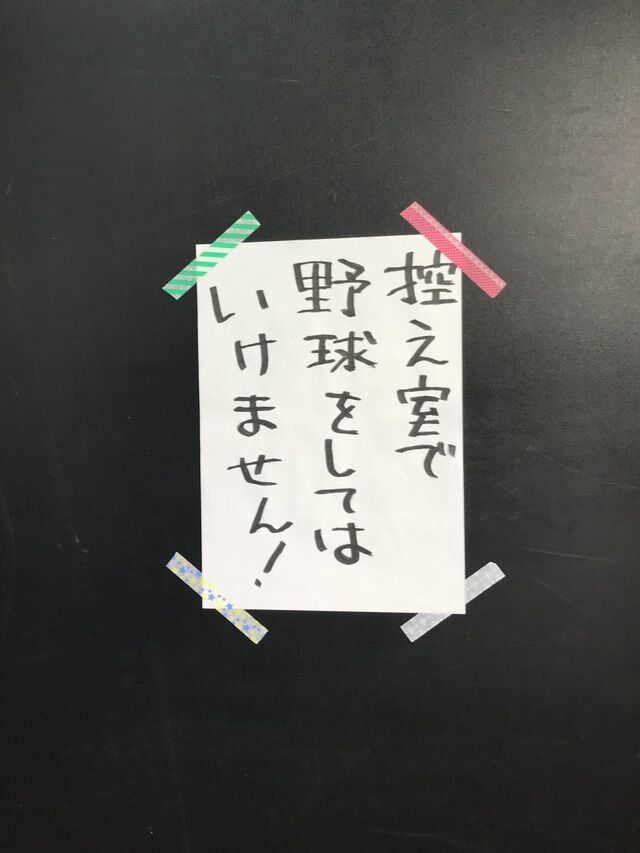 控え室で
野球をしては
いけません!